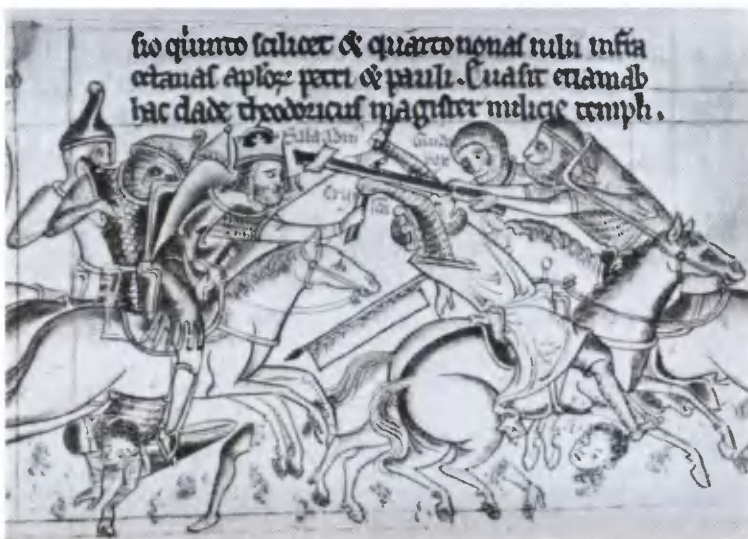 sio q'unto scilicet & quarto nonas iulii infra
octauas aplorꝝ petri & pauli. Euasit etiam ab
hac clade theodoricus magister milicie templi.
Saladin
Guido
rex
Crux